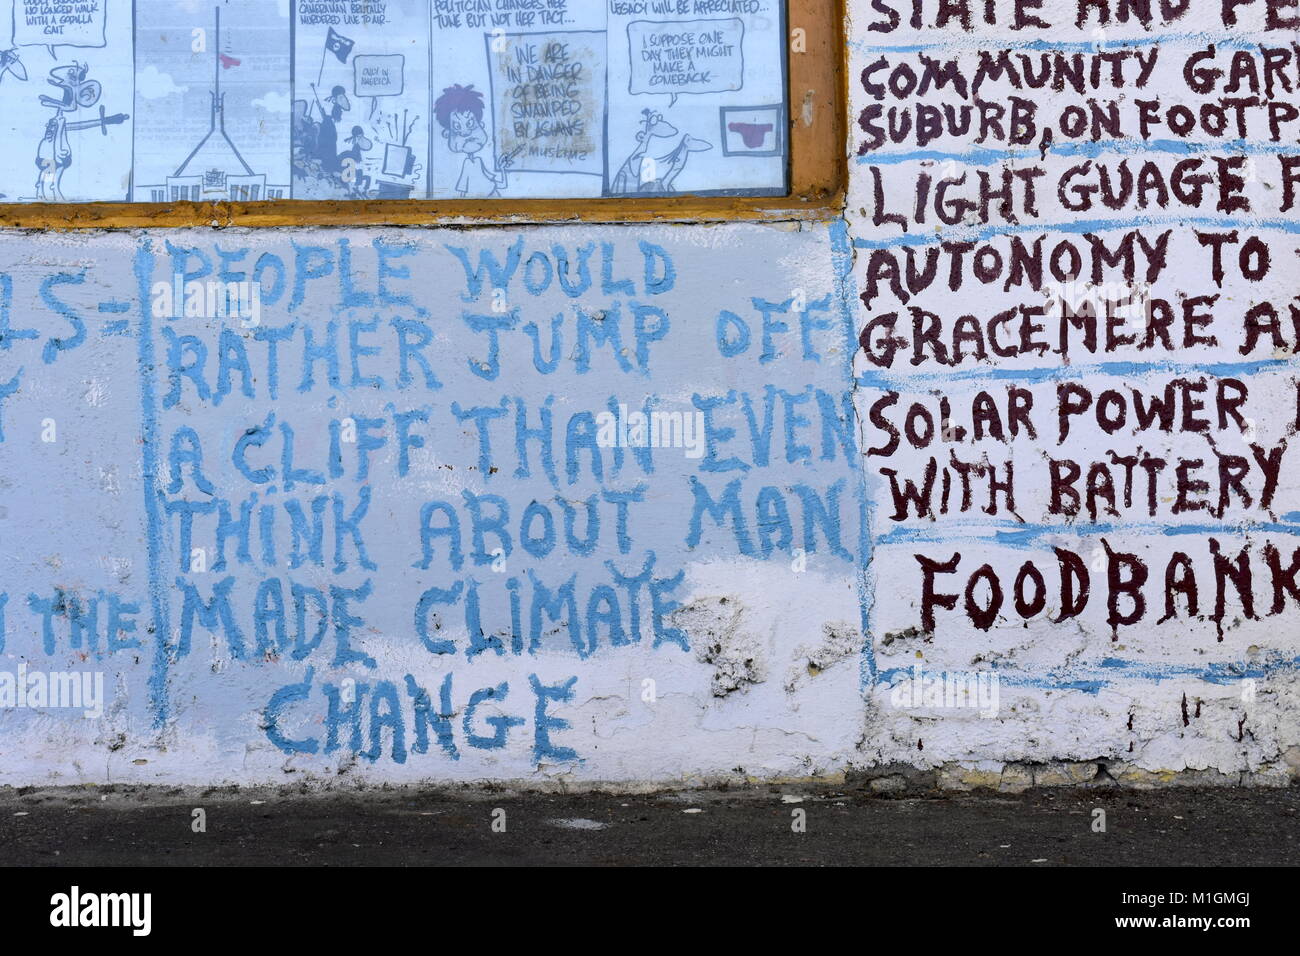 NO LONGER WALK
WITH A GORILLA
GAIT
CANADIAN BRUTALLY
MURDERED LIVE TO AIR...
ONLY IN
AMERICA
POLITICIAN CHANGES HER
TUNE BUT NOT HER TACT...
WE ARE
IN DANGER
OF BEING
SWAMPED
BY ASIANS
MUSLIMS
LEGACY WILL BE APPRECIATED...
I SUPPOSE ONE
DAY THEY MIGHT
MAKE A
COMEBACK
LS =
THE
PEOPLE WOULD
RATHER JUMP OFF
A CLIFF THAN EVEN
THINK ABOUT MAN
MADE CLIMATE
CHANGE
STATE AND FE
COMMUNITY GAR
SUBURB, ON FOOTP
LIGHT GUAGE
AUTONOMY TO
GRACEMERE
SOLAR POWER
WITH BATTERY
FOODBANK
alamy stock photo
alamy
Image ID: M1GMGJ
www.alamy.com